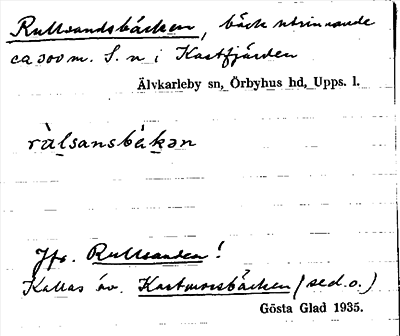 Rullsandsbäcken, bäck utrinnande
ca 300 m. S. n i Kastfjärden
Älvkarleby sn, Örbyhus hd, Upps. l.
ràlsansbäkən
Jfr. Rullsanden!
Kallas äv. Kastmorsbäcken (se d.o.)
Gösta Glad 1935.